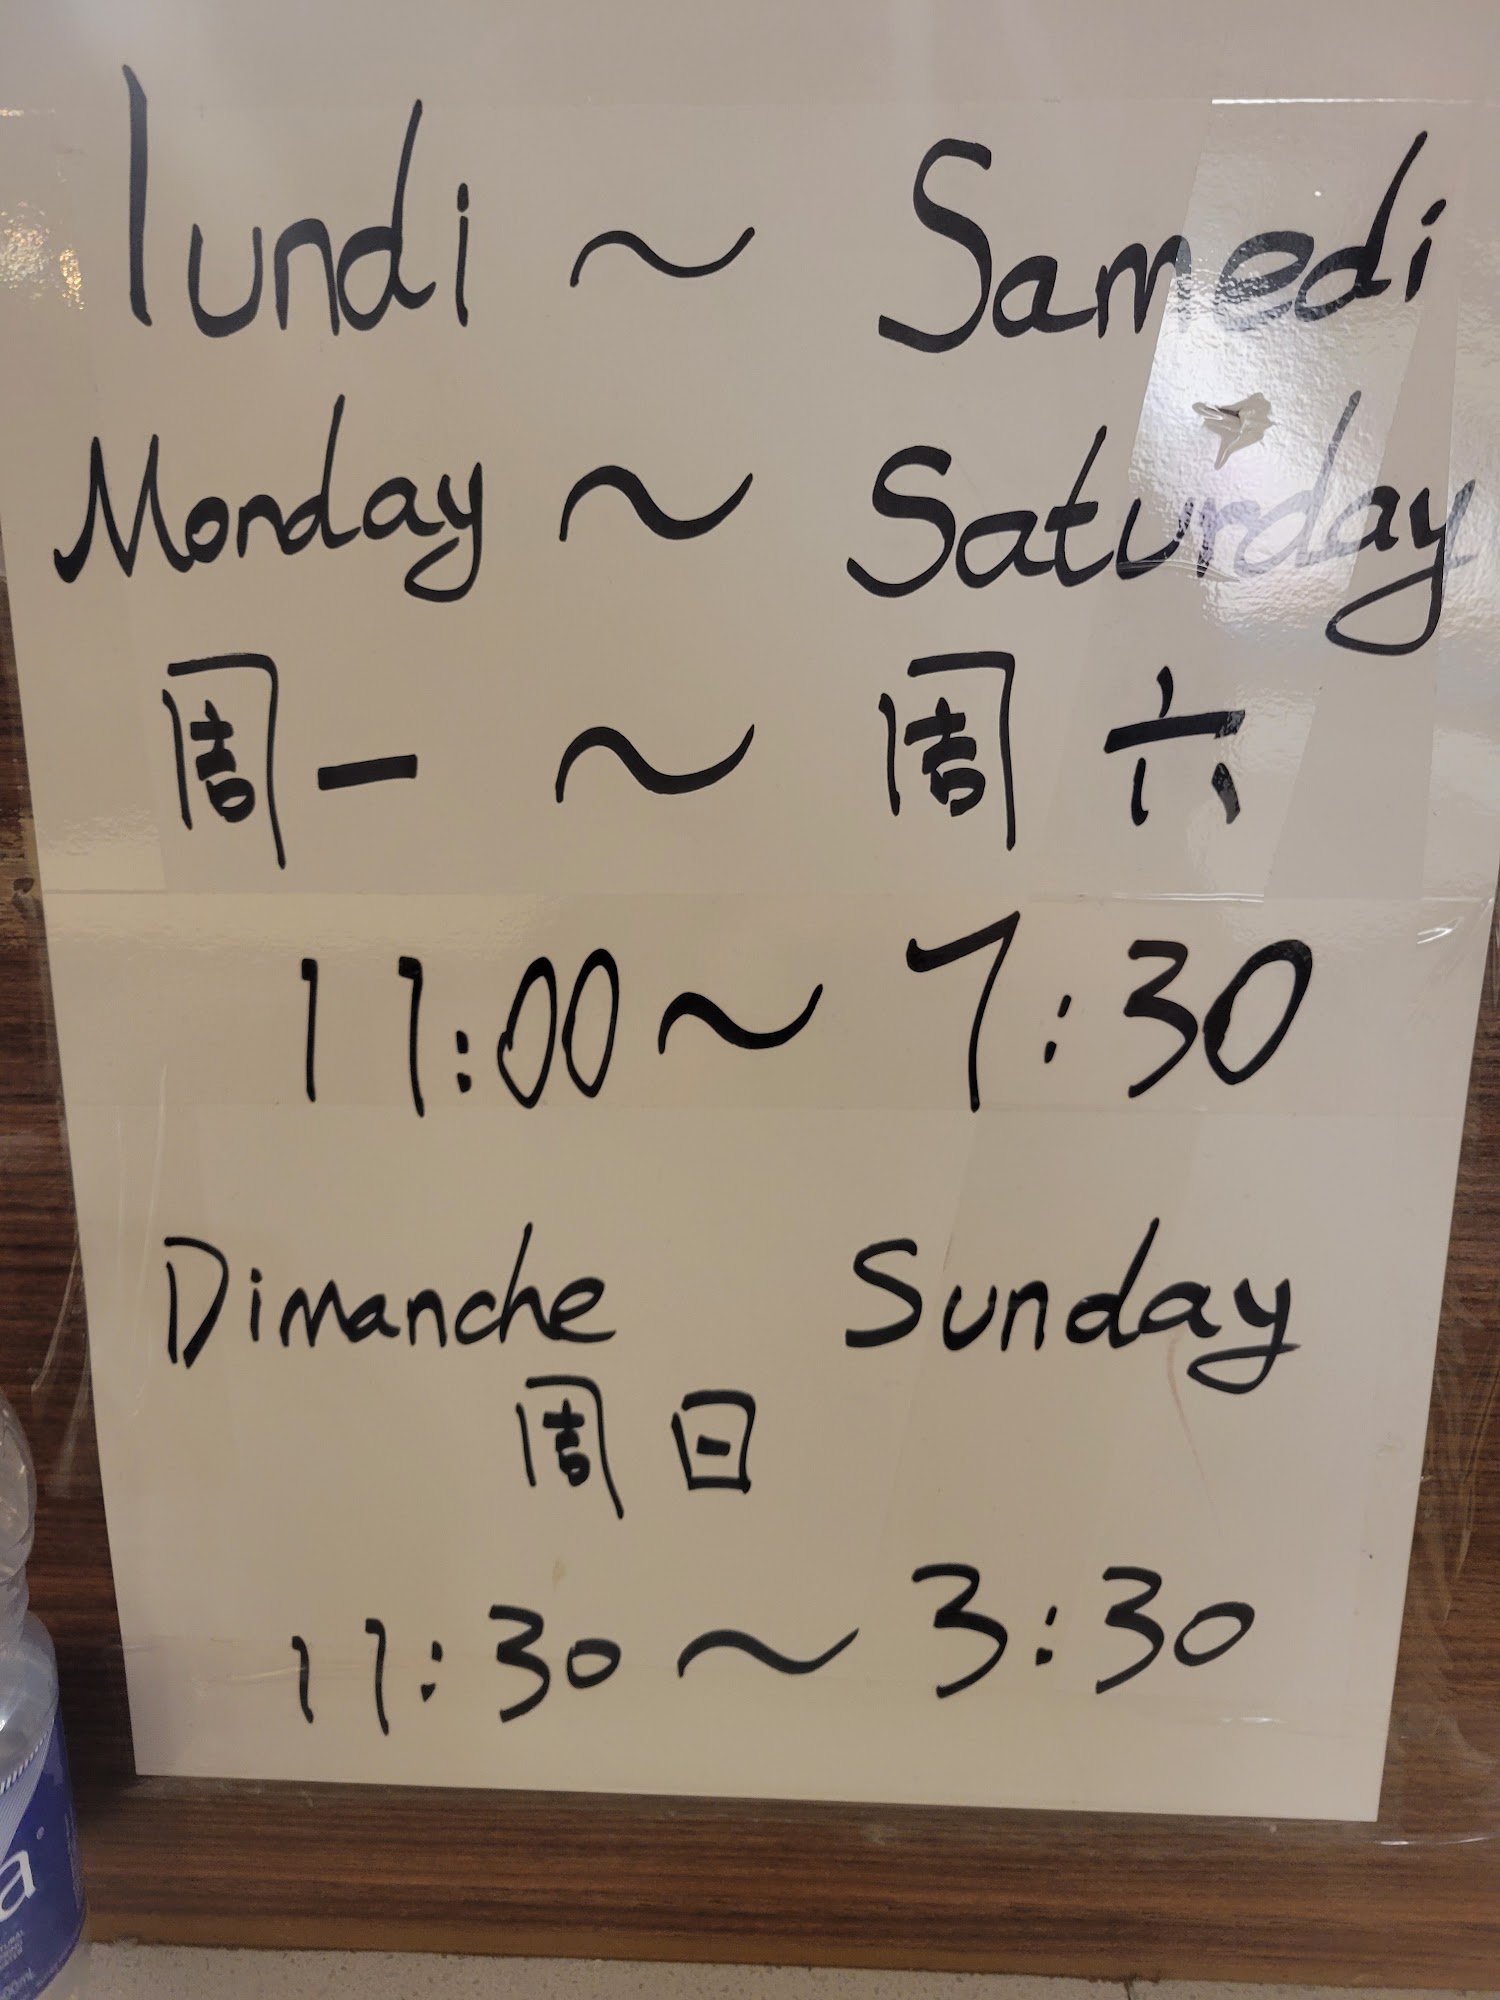 lundi ~ Samedi
Monday ~ Saturday
周一 ~ 周六
11:00 ~ 7:30
Dimanche Sunday
周日
11:30 ~ 3:30
a